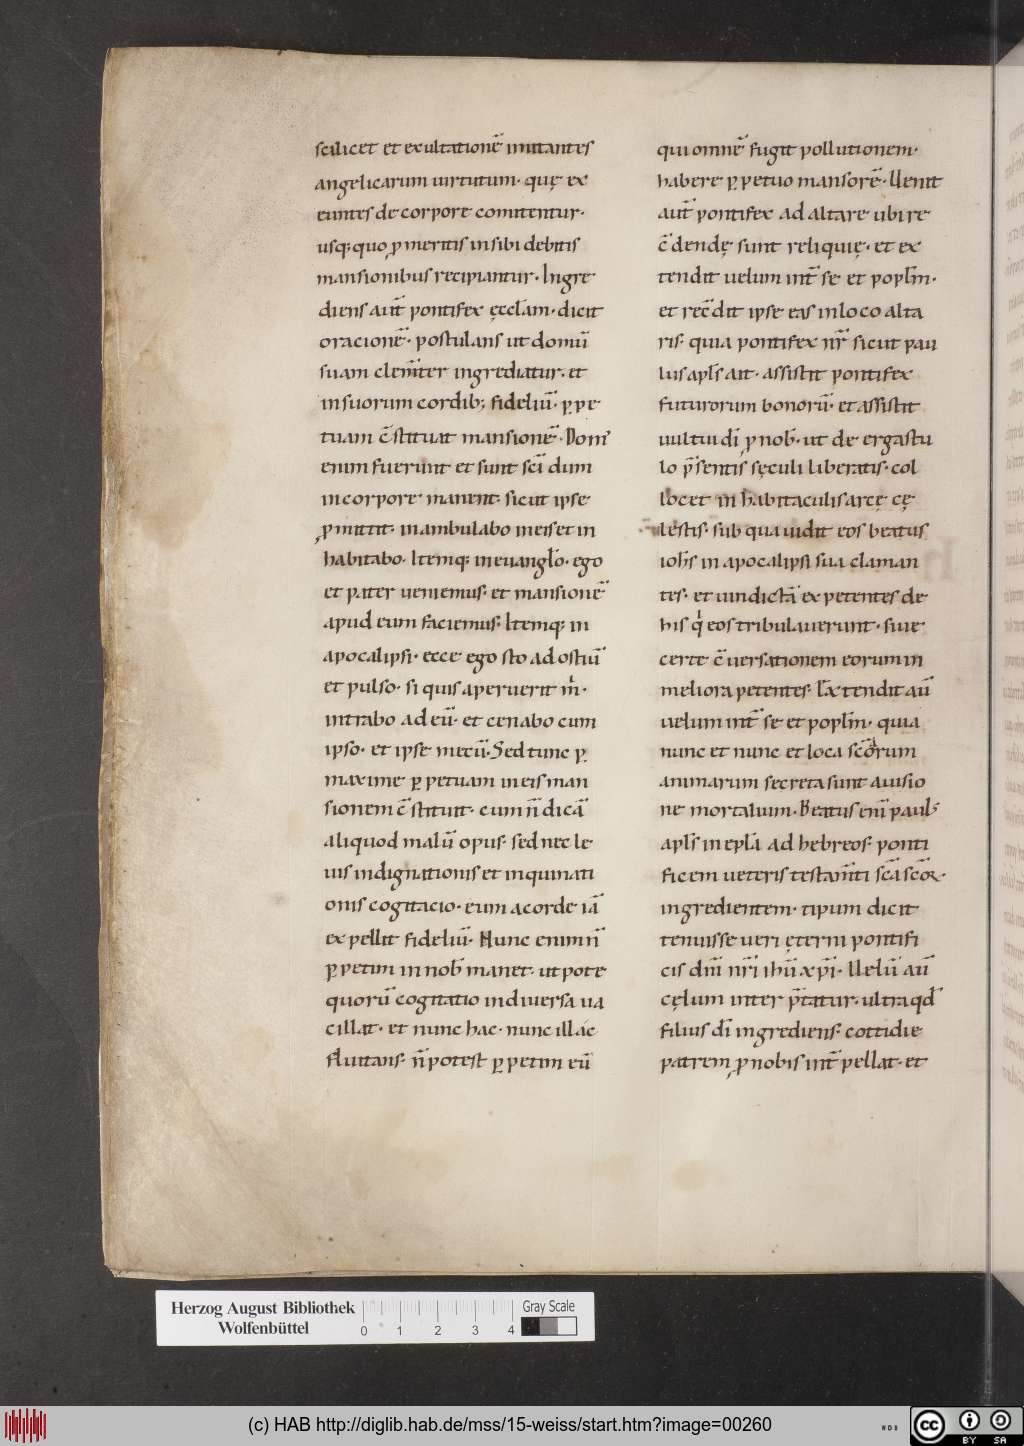 scilicet et exultationē imitantes
angelicarum uirtutum· quę ex
euntes de corpore comitentur·
usq; quo ꝓ meritis in sibi debitis
mansionibus recipiantur· Ingre
diens aut̄ pontifex ęccl̄am· dicit
oracionē· postulans ut domū
suam clem̄ter ingrediatur· et
in suorum cordib; fideliū· ꝑpe
tuam c̄stituat mansionē· Dom̄
enim fuerunt et sunt sc̄i dum
in corpore manent· sicut ipse
ꝓmittit· inambulabo in eis et in
habitabo· Itemq; in euangl̄o· ego
et pater ueniemus· et mansionē
apud eum faciemus· Itemq; in
apocalipsi· ecce ego sto ad ostiū
et pulso· si quis aperuerit m̓·
intrabo ad eū· et cenabo cum
ipso· et ipse mecū· Sed tunc ꝑ
maxime ꝑpetuam in eis man
sionem c̄stituit· cum n̄ dicā
aliquod malū opus· sed nec le
uis indignationis et inquinati
onis cogitacio· eum a corde iā
expellit fideliū· Nunc enim n̄
ꝑpetim in nob̄ manet· utpote
quorū cogitatio in diuersa ua
cillat· et nunc hac· nunc illác
fluitans· n̄ potest ꝑpetim eū
qui omnē fugit pollutionem·
habere ꝑpetuo mansorē· Uenit
aut̄ pontifex ad altare ubi re
c̄dendę sunt reliquię· et ex
tendit uelum int̄ se et popl̄m·
et rec̄dit ipse eas in loco alta
ris· quia pontifex nr̄ sicut pau
lus apl̄s ait· assistit pontifex
futurorum bonorū· et assistit
uultui dī ꝓ nob̄· ut de ergastu
lo p̄sentis sęculi liberatis· col
locet in habitaculis arcę cę
lestis· sub qua uidit eos beatus
ioh̄s in apocalipsi sua claman
tes· et uindictā expetentes de
his q̓ eos tribulauerunt· siue
certe c̄uersationem eorum in
meliora petentes· Extendit aū
uelum int̄ se et popl̄m· quia
nunc et nunc et loca sc̄orum
animarum secreta sunt a uisio
ne mortalium· Beatus eni͂ paul᾽
apl̄s in epl̄a ad hebreos· ponti
ficem ueteris testam̄ti sc̄a sc̄oꝝ·
ingredientem· tipum dicit
tenuisse ueri ęterni pontifi
cis dn̄i nr̄i ih̄u xp̄i· Uelū aū
cęlum inter p̄tatur· ultra qd̄
filius dī ingrediens· cottidie
patrem ꝓ nobis int̄pellat· et
Herzog August Bibliothek
Wolfenbüttel
0 1 2 3 4
Gray Scale
(c) HAB http://diglib.hab.de/mss/15-weiss/start.htm?image=00260
WDB
cc
BY SA